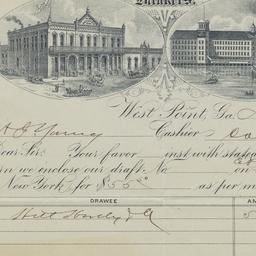 Bankers.
West Point, Ga.
Young Cashier
Dear Sir: Your favor inst with state
rn we enclose our draft No on
New York for $55 as per m
DRAWEE AM
Hill Hardy & 5